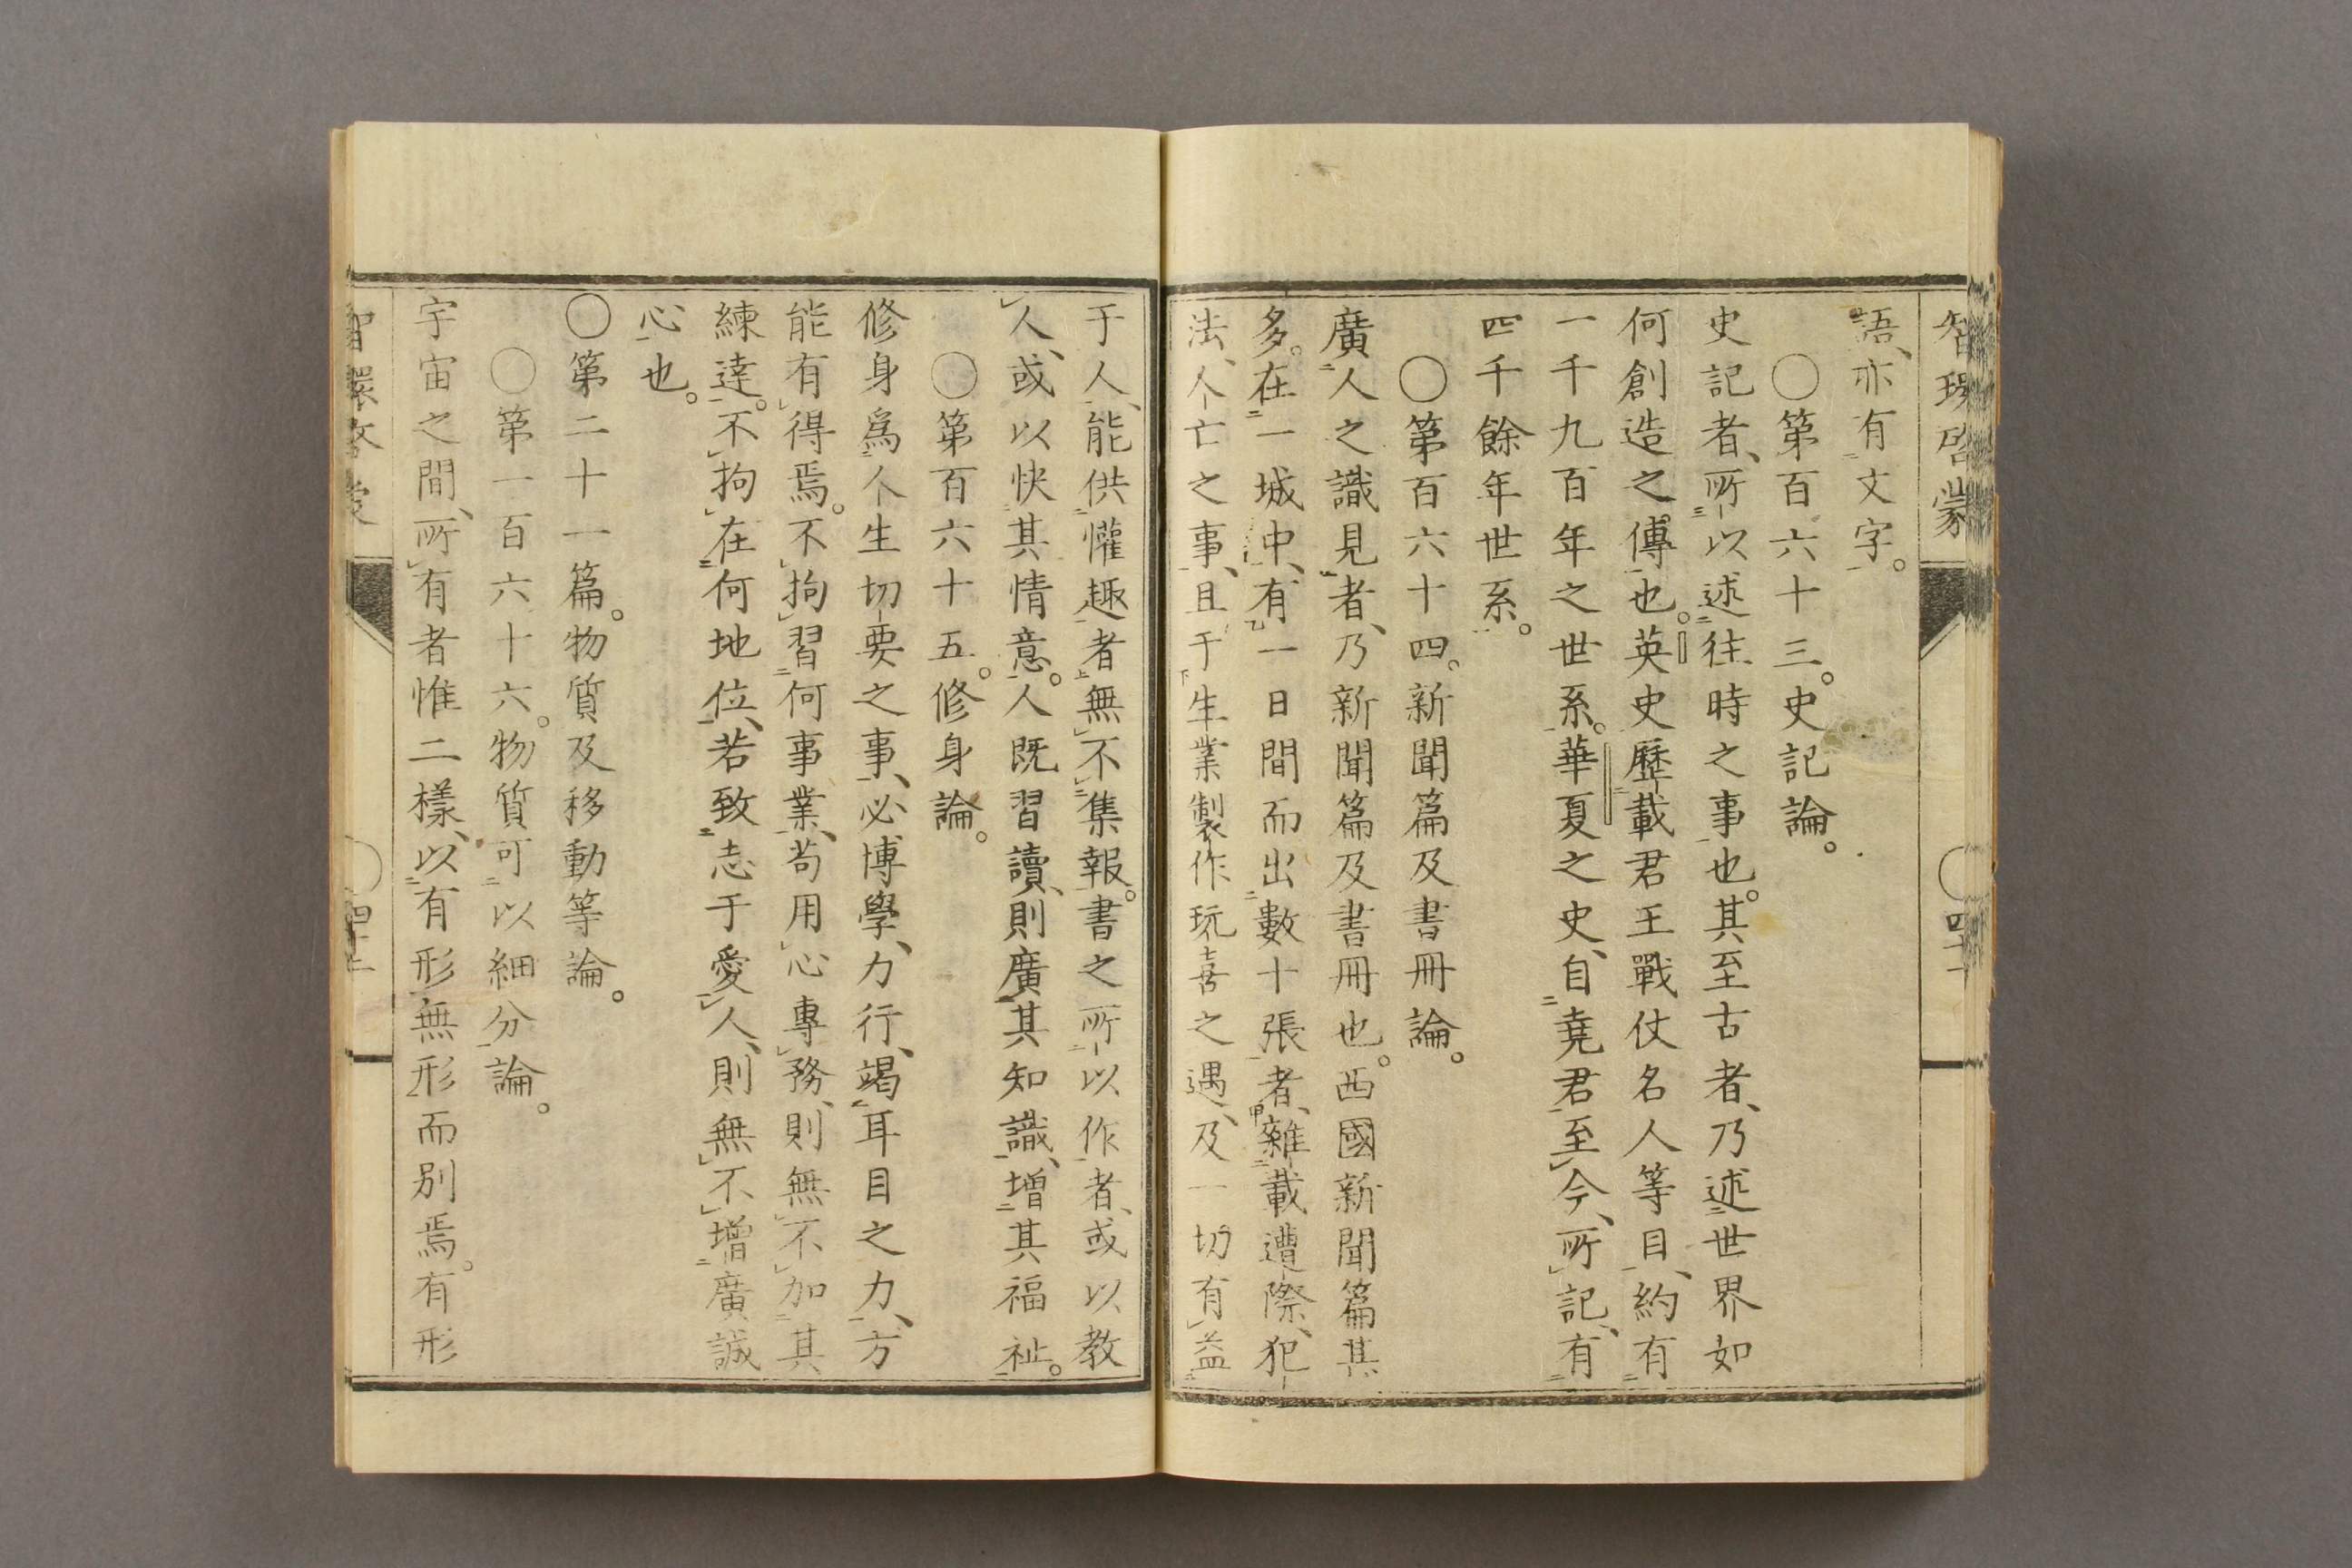 智環啓蒙
四十一
語、亦有文字。
〇第百六十三。史記論。
史記者、所以述往時之事也。其至古者、乃述世界如
何創造之傳也。英史歷載君王戰仗名人等目、約有
一千九百年之世系。華夏之史、自堯君至今、所記、有
四千餘年世系。
〇第百六十四。新聞篇及書冊論。
廣人之識見者、乃新聞篇及書冊也。西國新聞篇其
多。在一城中、有一日間而出數十張者、雜載遭際、犯
法、人亡之事、且于生業製作玩喜之遇、及一切有益
于人、能供懽趣者無不集報。書之所以作者、或以教
人、或以快其情意。人既習讀、則廣其知識、增其福祉。
〇第百六十五。修身論。
修身爲人生切要之事、必博學、力行、竭耳目之力、方
能有得焉。不拘習何事業、苟用心專務、則無不加其
練達。不拘在何地位、若致志于愛人、則無不增廣誠
心也。
〇第二十一篇。物質及移動等論。
〇第一百六十六。物質可以細分論。
宇宙之間、所有者惟二樣、以有形無形而別焉。有形
智環啓蒙
四十二